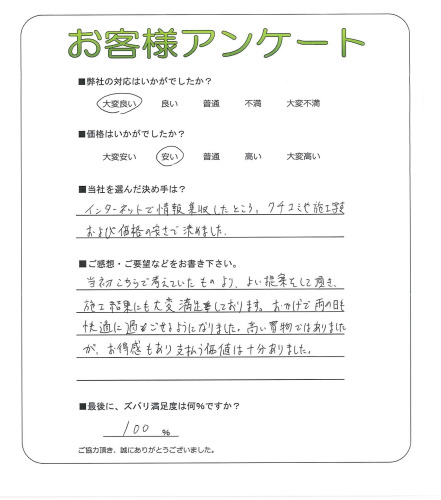 お客様アンケート
■弊社の対応はいかがでしたか？
大変良い 良い 普通 不満 大変不満
■価格はいかがでしたか？
大変安い 安い 普通 高い 大変高い
■当社を選んだ決め手は？
インターネットで情報集収したところ。クチコミや施工実績
および価格の安さで決めました。
■ご感想・ご要望などをお書き下さい。
当初こちらで考えていたものより、よい提案をして頂き、
施工結果にも大変満足しております。おかげで雨の日も
快適に過ごせるようになりました。高い買物ではありました
が、お得感もあり支払う価値は十分ありました。
■最後に、ズバリ満足度は何%ですか？
100 %
ご協力頂き、誠にありがとうございました。